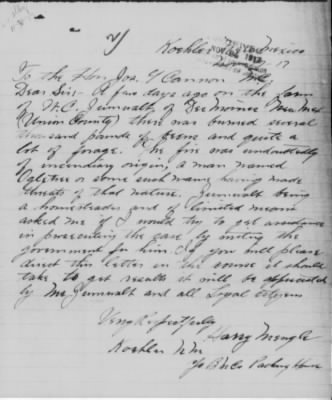 Koehler New Mexico
17
To the Hon. Jos. Y Cannon
Dear Sir:- A few days ago on the farm
of H.C. Zumwalt of Des Moines New Mex
(Union County) there was burned several
thousand pounds of beans and quite a
lot of forage. The fire was undoubtedly
of incendiary origin, a man named
Ogletree or some such name having made
threats of that nature. Zumwalt being
a homesteader and of limited means
asked me if I would try to get assistance
in prosecuting the case, by writing the
government for him. If you will please
direct this letter on the course it should
take to get results it will be appreciated
by Mr. Zumwalt and all Loyal citizens
Very Respectfully
Harry Mengle
Koehler N.M.
Packing House